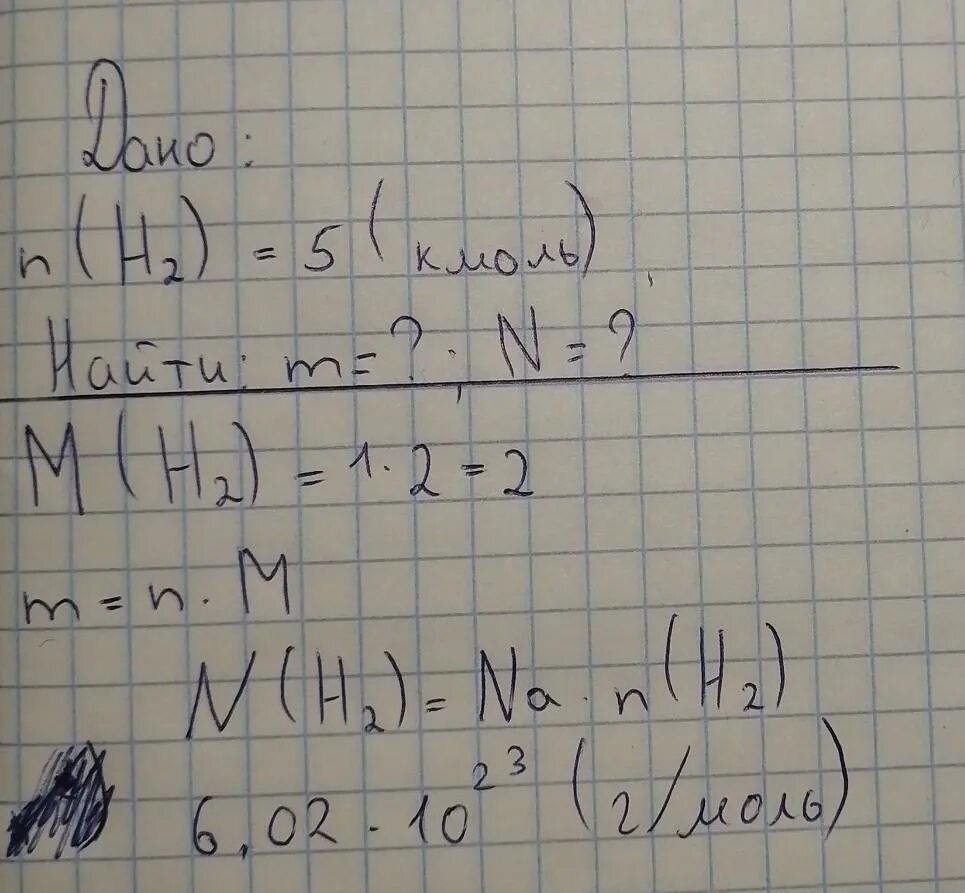 Дано:
n(H₂) = 5 (кмоль)
Найти: m = ?; N = ?
M(H₂) = 1 · 2 = 2
m = n · M
N(H₂) = Na · n(H₂)
6,02 · 10²³ (г/моль)